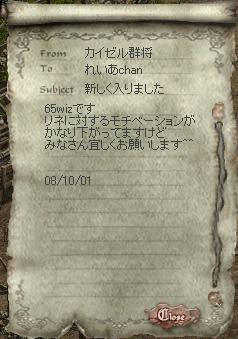 From カイゼル群将
To れいあchan
Subject 新しく入りました
65wizです
リネに対するモチベーションが
かなり下がってますけど
みなさん宜しくお願いします^^
08/10/01
Close